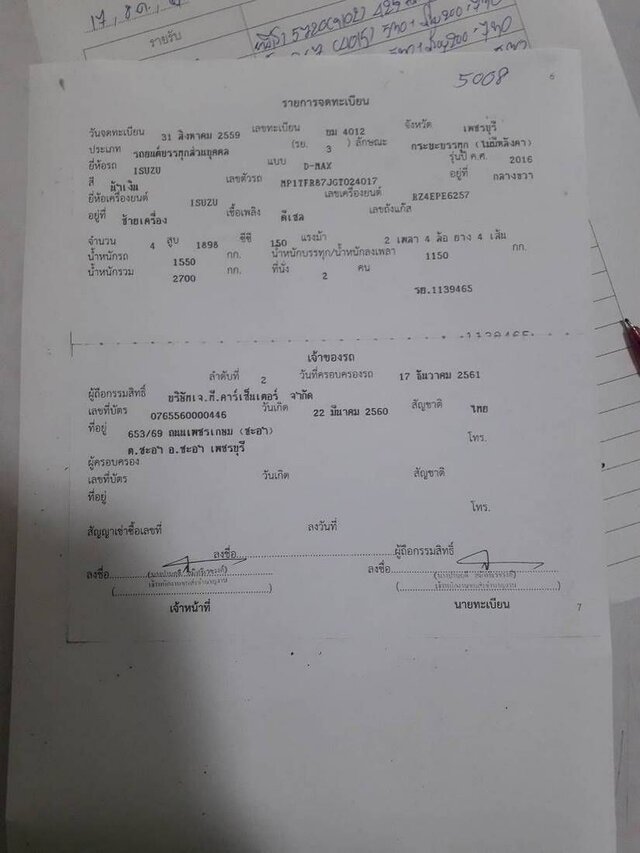 รายรับ
5008
6
รายการจดทะเบียน
วันจดทะเบียน 31 สิงหาคม 2559 เลขทะเบียน ยม 4012 จังหวัด เพชรบุรี
ประเภท รถยนต์บรรทุกส่วนบุคคล (รย. 3 ) ลักษณะ กระบะบรรทุก (ไม่มีหลังคา)
ยี่ห้อรถ ISUZU แบบ D-MAX รุ่นปี ค.ศ. 2016
สี น้ำเงิน เลขตัวรถ MP1TFR87JGT024017 อยู่ที่ กลางขวา
ยี่ห้อเครื่องยนต์ ISUZU เลขเครื่องยนต์ RZ4EPE6257
อยู่ที่ ซ้ายเครื่อง เชื้อเพลิง ดีเซล เลขถังแก๊ส
จำนวน 4 สูบ 1898 ซีซี 150 แรงม้า 2 เพลา 4 ล้อ ยาง 4 เส้น
น้ำหนักรถ 1550 กก. น้ำหนักบรรทุก/น้ำหนักลงเพลา 1150 กก.
น้ำหนักรวม 2700 กก. ที่นั่ง 2 คน
รย.1139465
1139465
เจ้าของรถ
ลำดับที่ 2 วันที่ครอบครองรถ 17 ธันวาคม 2561
ผู้ถือกรรมสิทธิ์ บริษัทเจ.ที.คาร์เซ็นเตอร์ จำกัด
เลขที่บัตร 0765560000446 วันเกิด 22 มีนาคม 2560 สัญชาติ ไทย
ที่อยู่ 653/69 ถนนเพชรเกษม (ชะอำ) โทร.
ต.ชะอำ อ.ชะอำ เพชรบุรี
ผู้ครอบครอง
เลขที่บัตร วันเกิด สัญชาติ
ที่อยู่ โทร.
สัญญาเช่าซื้อเลขที่ ลงวันที่
ลงชื่อ ผู้ถือกรรมสิทธิ์
ลงชื่อ ลงชื่อ
เจ้าหน้าที่ นายทะเบียน
7